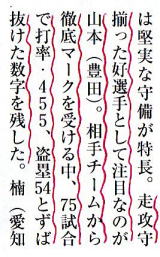 は堅実な守備が特長。走攻守
揃った好選手として注目なのが
山本（豊田）。相手チームから
徹底マークを受ける中、75試合
で打率・455、盗塁54とずば
抜けた数字を残した。楠（愛知